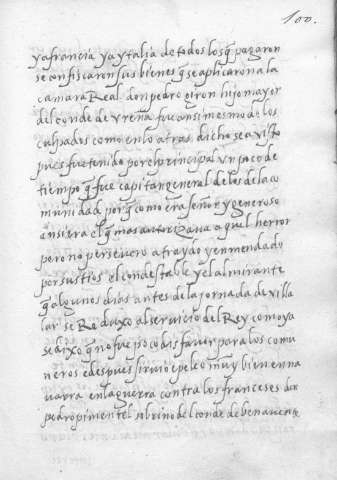 100.
yafrancia ya ytalia de todos losq̃ pagaron
se confiscaron sus bienes q̃ se aplicaron a la
camara Real don pedro giron hijo mayor
del conde de vreña fue ansimesmo de los
culpados como en lo atras dicho se a visto
pues fue tenido por el principal vn poco de
tiempo q̃ fue capitan general de los de la co
munidad porq̃ como era señor y generoso
ansi era el q̃ mas autorizaua aquel herror
pero no persevero atraydo y enmendado
por sus tios el condestable y el almirante
q̃ algunos dias antes de la jornada de villa
lar se Reduxo al servicio del Rey como ya
se dixo q̃ no fue poco disfavor para los comu
neros e despues sirvio e peleo muy bien en na
varra en la guerra contra los franceses don
pedro pimentel sobrino del conde de benavente